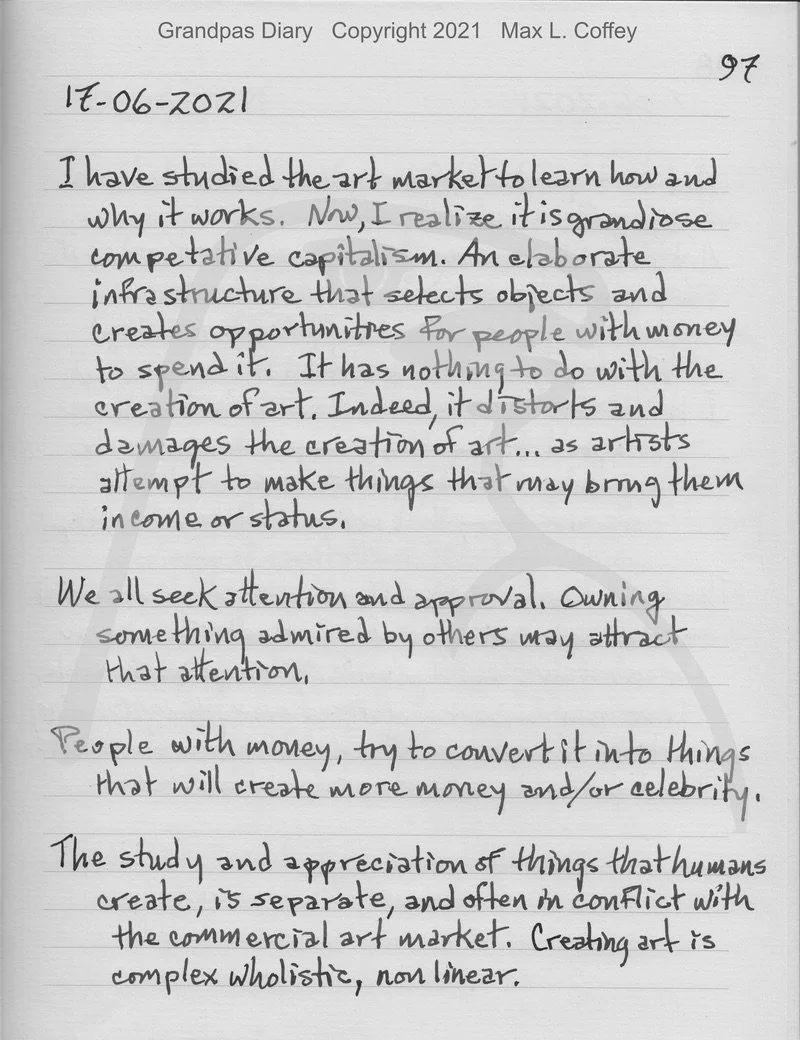 Grandpas Diary Copyright 2021 Max L. Coffey
97
17-06-2021
I have studied the art market to learn how and
why it works. Now, I realize it is grandiose
competative capitalism. An elaborate
infrastructure that selects objects and
creates opportunities for people with money
to spend it. It has nothing to do with the
creation of art. Indeed, it distorts and
damages the creation of art... as artists
attempt to make things that may bring them
income or status.
We all seek attention and approval. Owning
something admired by others may attract
that attention.
People with money, try to convert it into things
that will create more money and/or celebrity.
The study and appreciation of things that humans
create, is separate, and often in conflict with
the commercial art market. Creating art is
complex wholistic, non linear.